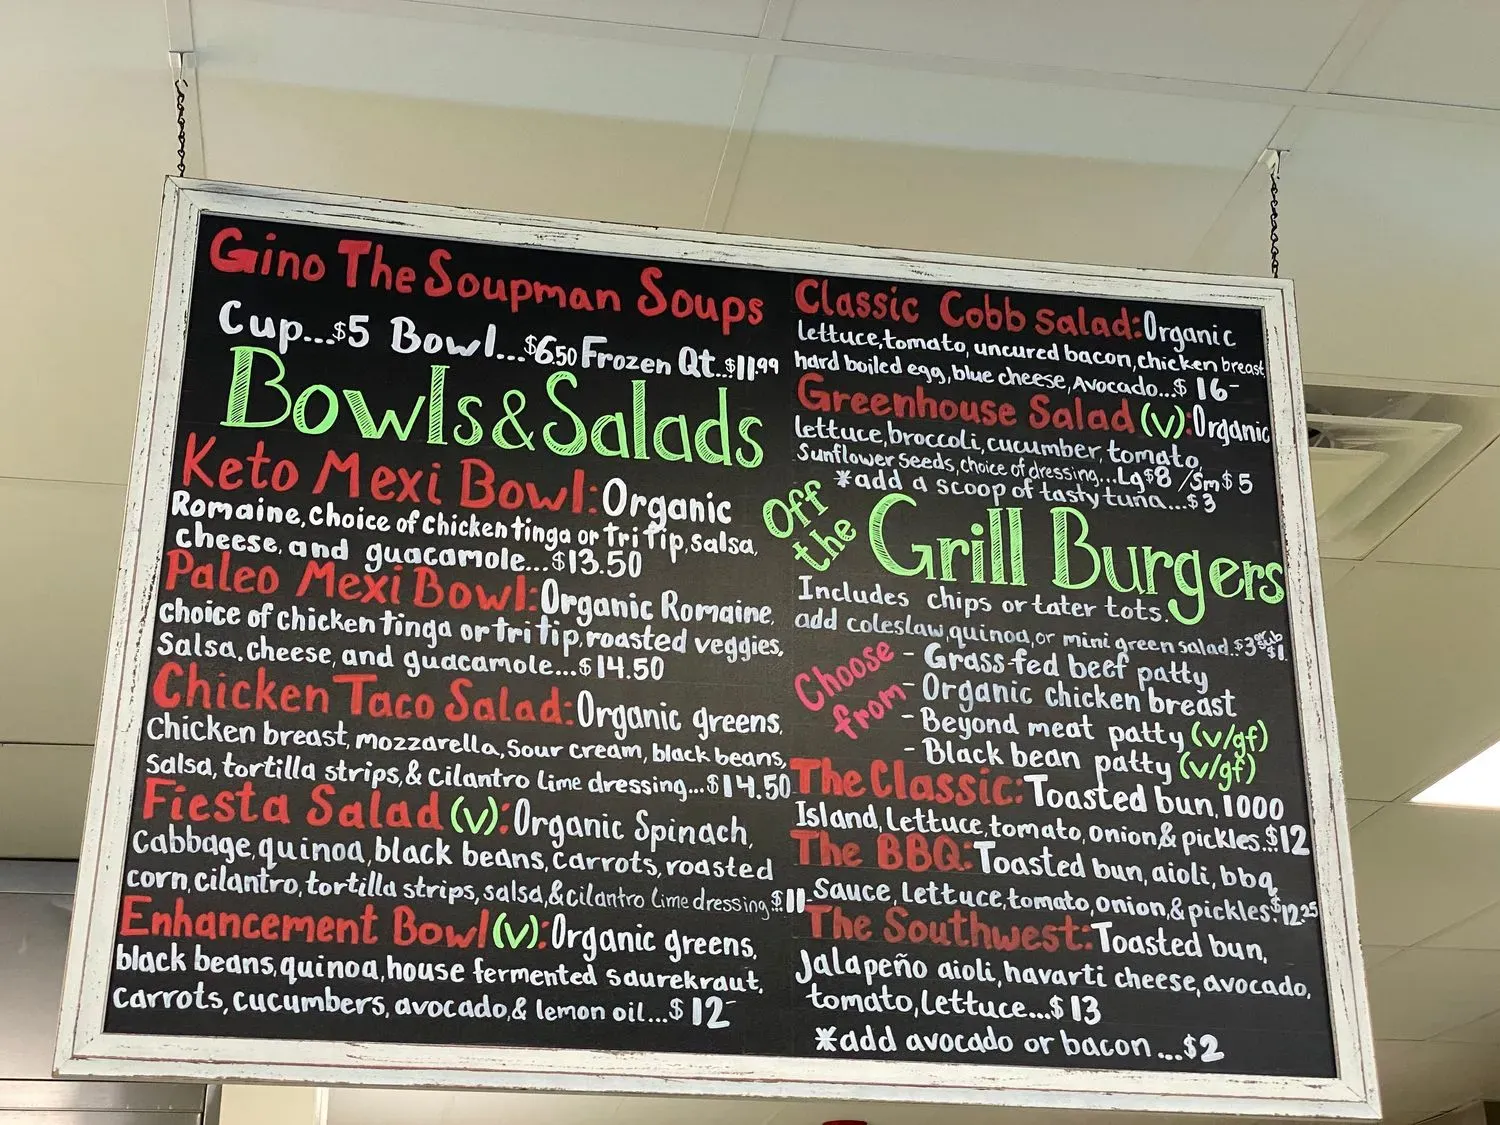 Gino The Soupman Soups
Cup...$5 Bowl...$6.50 Frozen Qt..$11.99
Bowls & Salads
Keto Mexi Bowl: Organic
Romaine, choice of chicken tinga or tri tip, salsa,
cheese, and guacamole...$13.50
Paleo Mexi Bowl: Organic Romaine,
choice of chicken tinga or tri tip, roasted veggies,
Salsa, cheese, and guacamole...$14.50
Chicken Taco Salad: Organic greens,
Chicken breast, mozzarella, sour cream, black beans,
salsa, tortilla strips, & cilantro lime dressing...$14.50
Fiesta Salad (v): Organic Spinach,
Cabbage, quinoa, black beans, carrots, roasted
corn, cilantro, tortilla strips, salsa, & cilantro lime dressing..$11-
Enhancement Bowl (v): Organic greens,
black beans, quinoa, house fermented saurekraut,
carrots, cucumbers, avocado, & lemon oil...$12-
Classic Cobb Salad: Organic
lettuce, tomato, uncured bacon, chicken breast,
hard boiled egg, blue cheese, Avocado...$16-
Greenhouse Salad (v): Organic
lettuce, broccoli, cucumber, tomato,
Sunflower seeds, choice of dressing...Lg $8 /Sm $5
*add a scoop of tasty tuna...$3
Off the Grill Burgers
Includes chips or tater tots.
add coleslaw, quinoa, or mini green salad..$3 or sub $1.
Choose from
- Grass-fed beef patty
- Organic chicken breast
- Beyond meat patty (v/gf)
- Black bean patty (v/gf)
The Classic: Toasted bun, 1000
Island, Lettuce, tomato, onion & pickles..$12
The BBQ: Toasted bun, aioli, bbq
sauce, Lettuce, tomato, onion, & pickles..$12.25
The Southwest: Toasted bun,
Jalapeño aioli, havarti cheese, avocado,
tomato, Lettuce...$13
*add avocado or bacon...$2